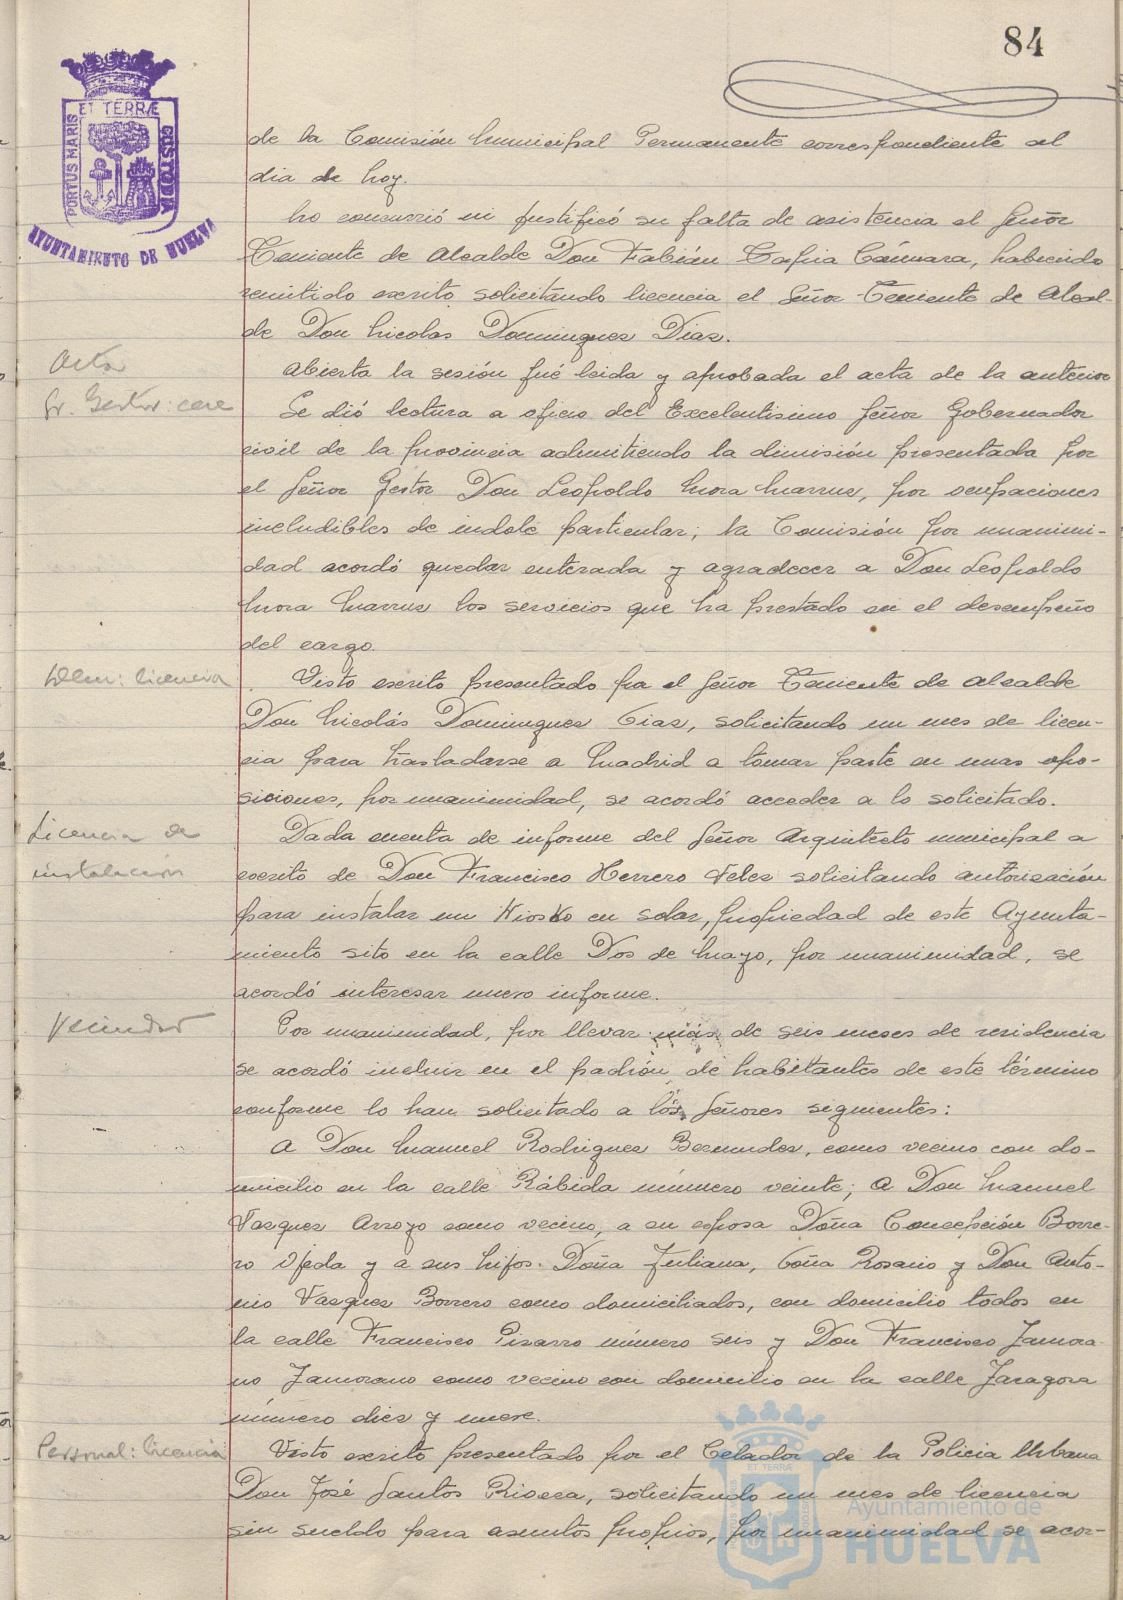 84
ET TERRÆ
PORTUS MARIS
CUSTODIA
AYUNTAMIENTO DE HUELVA
de la Comisión Municipal Permanente correspondiente al
dia de hoy.
No concurrió ni justificó su falta de asistencia el Señor
Teniente de Alcalde Don Fabián Tapia Cámara, habiendo
remitido escrito solicitando licencia el Señor Teniente de Alcal-
de Don Nicolas Dominguez Diaz.
Acta
Abierta la sesión fué leida y aprobada el acta de la anterior
Sr. Gestor: cese
Se dió lectura a oficio del Excelentisimo Señor Gobernador
civil de la provincia admitiendo la dimisión presentada por
el Señor Gestor Don Leopoldo Mora por ocupaciones
ineludibles de indole particular; la Comisión por unanimi-
dad acordó quedar enterada y agradecer a Don Leopoldo
Mora los servicios que ha prestado en el desempeño
del cargo.
Idem: licencia
Visto escrito presentado por el Señor Teniente de Alcalde
Don Nicolás Dominguez Diaz, solicitando un mes de licen-
cia para trasladarse a Madrid a tomar parte en unas opo-
siciones, por unanimidad, se acordó acceder a lo solicitado.
Licencia de
instalación
Dada cuenta de informe del Señor Arquitecto municipal a
escrito de Don Francisco Herrero Velez solicitando autorización
para instalar un Kiosko en solar, propiedad de este Ayunta-
miento sito en la calle Dos de Mayo, por unanimidad, se
acordó interesar nuevo informe.
Vecindad
Por unanimidad, por llevar más de seis meses de residencia
se acordó incluir en el padrón de habitantes de este término
conforme lo han solicitado a los Señores siguientes:
A Don Manuel Rodriguez Bermudez, como vecino con do-
micilio en la calle Rábida número veinte; a Don Manuel
Vazquez Arroyo como vecino, a su esposa Doña Concepción Borre-
ro Ojeda y a sus hijos. Doña Juliana, Doña Rosario y Don Anto-
nio Vazquez Borrero como domiciliados, con domicilio todos en
la calle Francisco Pizarro número seis y Don Francisco Zamora-
no Zamorano como vecino con domicilio en la calle Zaragoza
número diez y nueve.
Personal: licencia
Visto escrito presentado por el Celador de la Policia Urbana
Don José Santos Rivera, solicitando un mes de licencia
sin sueldo para asuntos propios, por unanimidad se acor-
Ayuntamiento de
HUELVA